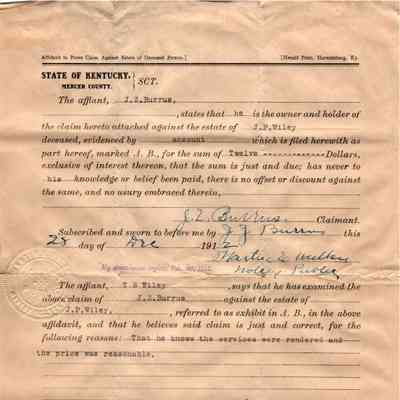 Affidavit to Prove Claim Against Estate of Deceased Person.] [Herald Print, Harrodsburg, Ky.
STATE OF KENTUCKY,
MERCER COUNTY. SCT.
The affiant, J.Z.Burrus,
, states that he is the owner and holder of
the claim hereto attached against the estate of J.P.Wiley
deceased, evidenced by account which is filed herewith as
part hereof, marked A. B., for the sum of Twelve ------------- Dollars,
exclusive of interest thereon, that the sum is just and due; has never to
his knowledge or belief been paid, there is no offset or discount against
the same, and no usury embraced therein,
J.Z. Burrus. Claimant.
Subscribed and sworn to before me by J Z Burrus this
28 day of Dec 1912
Notary Public
My commission expires Feb.
The affiant, T S Wiley , says that he has examined the
above claim of J.Z.Burrus against the estate of
J.P.Wiley, , referred to as exhibit in A. B., in the above
affidavit, and that he believes said claim is just and correct, for the
following reasons: That he knows the services were rendered and
the price was reasonable.